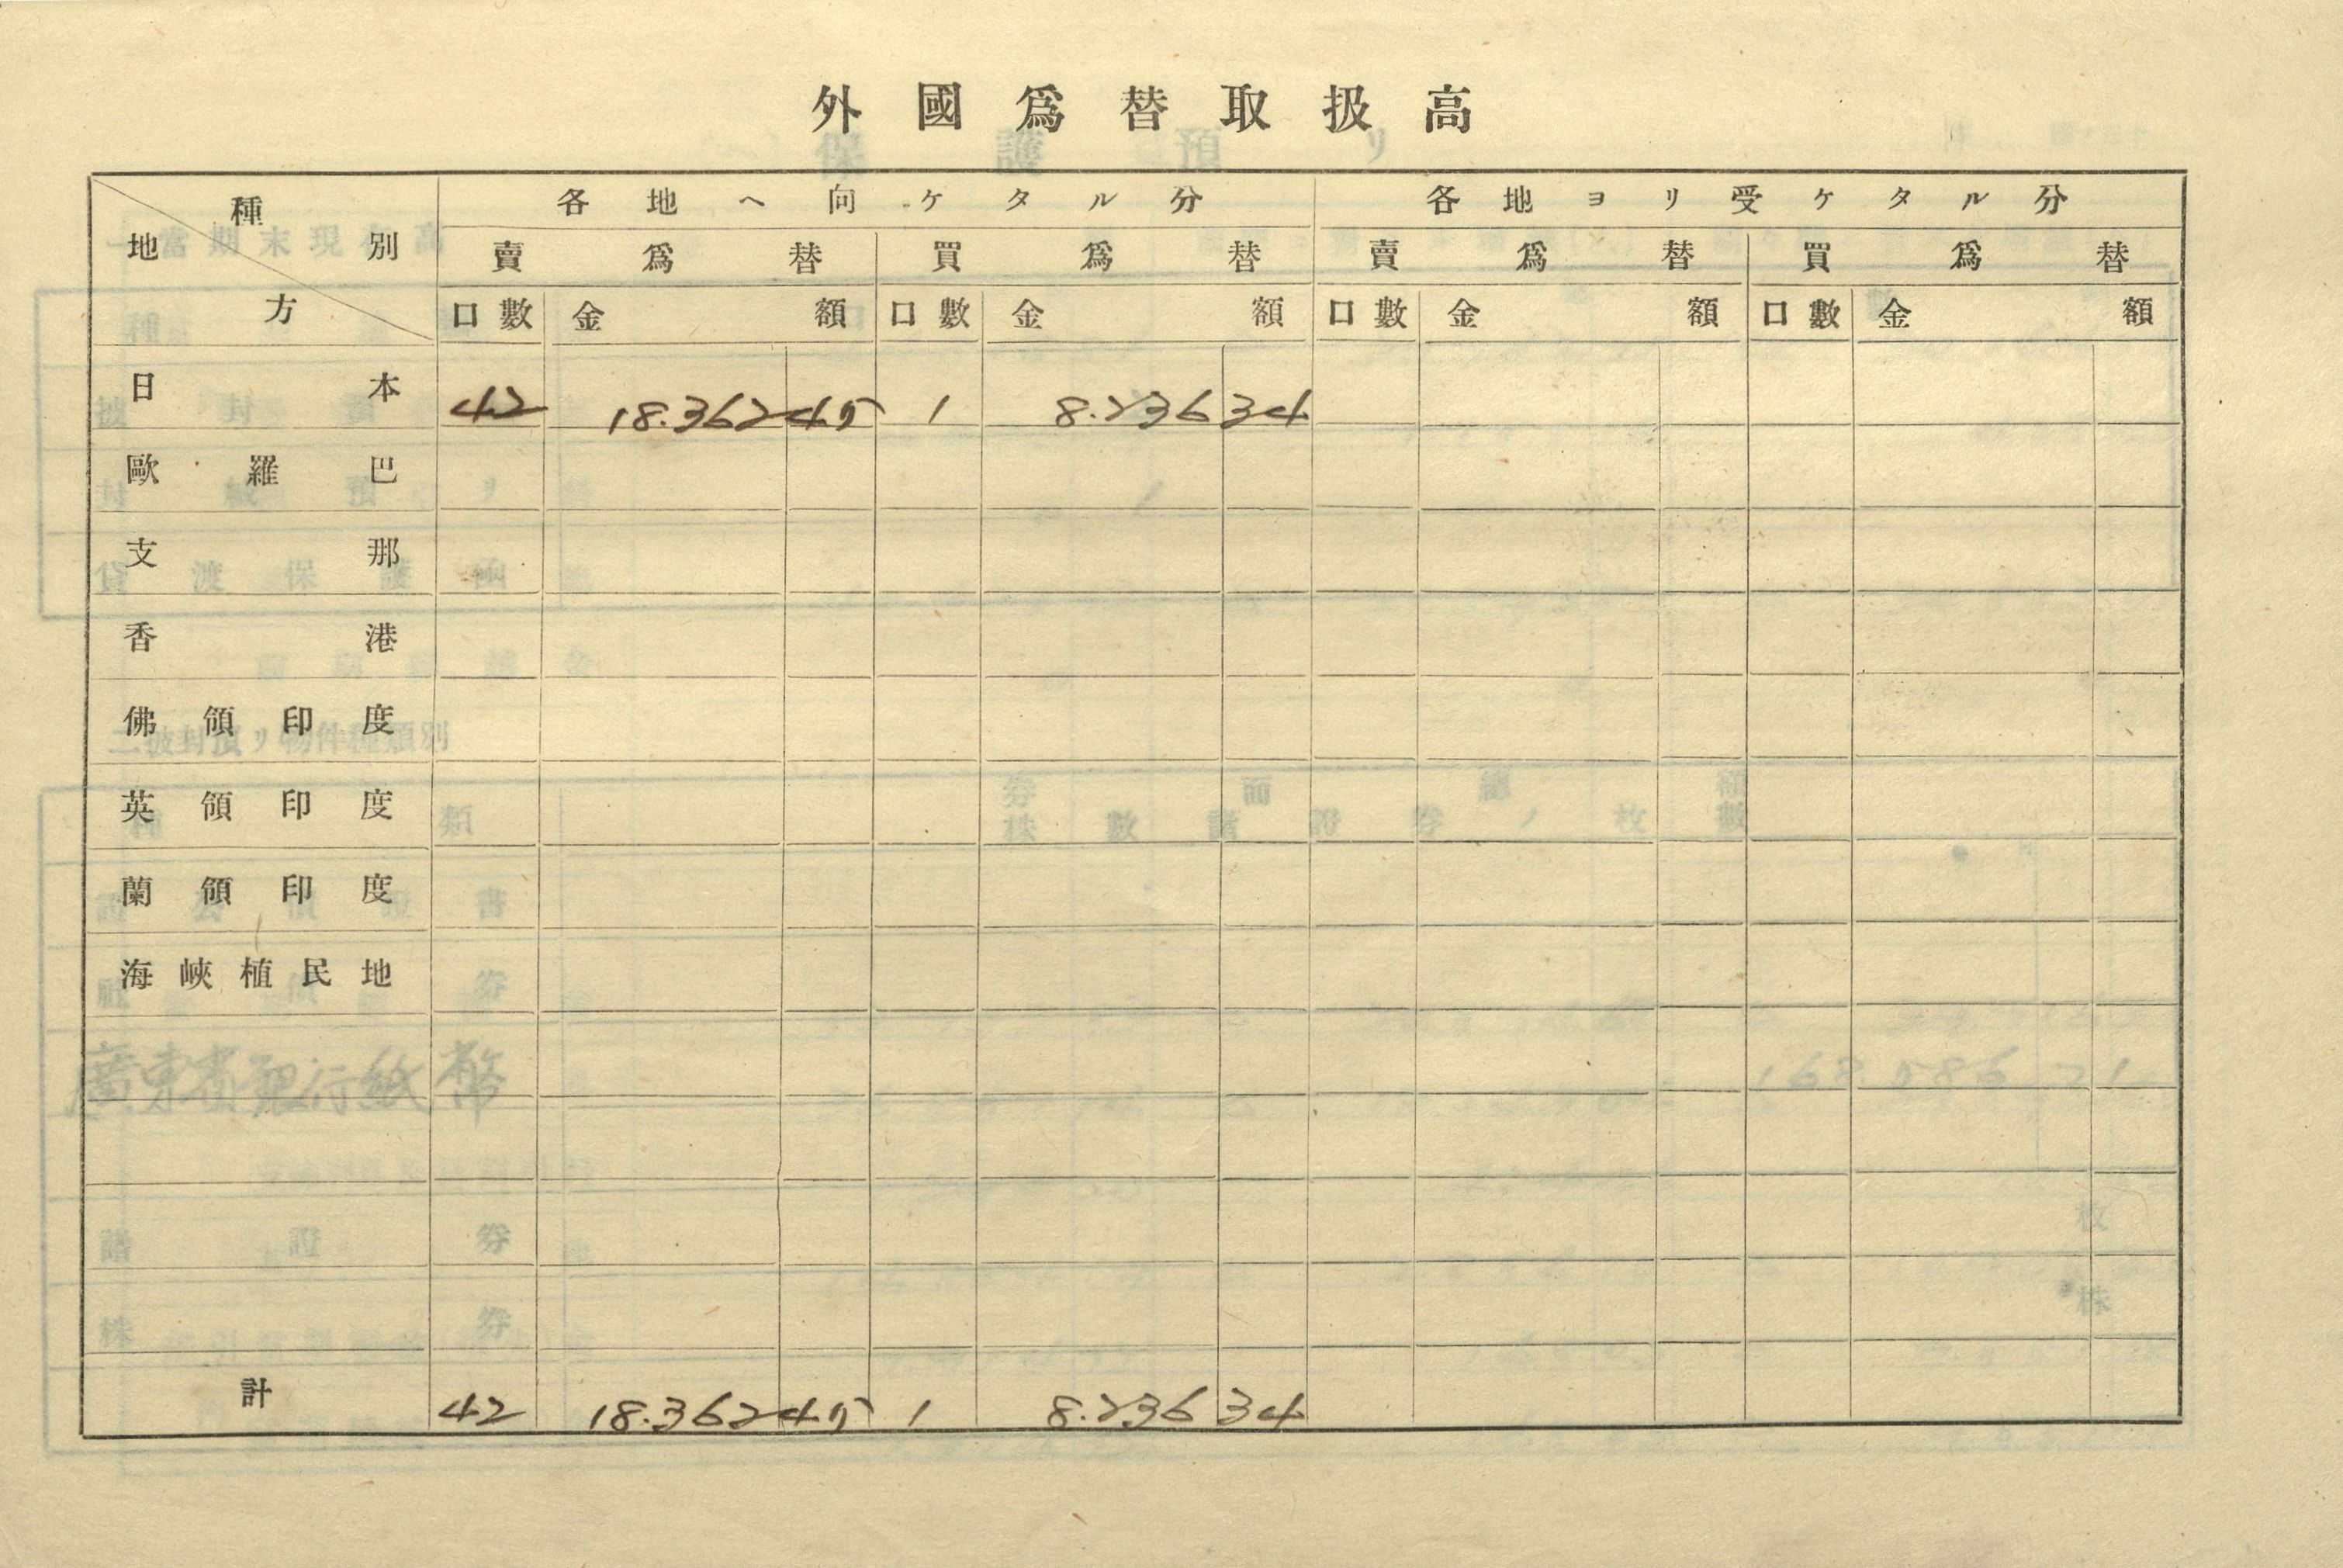 外國爲替取扱高
種別
地方
各地ヘ向ケタル分 各地ヨリ受ケタル分
賣爲替 買爲替 賣爲替 買爲替
口數 金額 口數 金額 口數 金額 口數 金額
日本 42 18.362 45 1 8.236 34
歐羅巴
支那
香港
佛領印度
英領印度
蘭領印度
海峽植民地
計 42 18.362 45 1 8.236 34
保護預リ
一當期末現在高
二披封預リ物件種類別
廣東省銀行紙幣 168 586 21